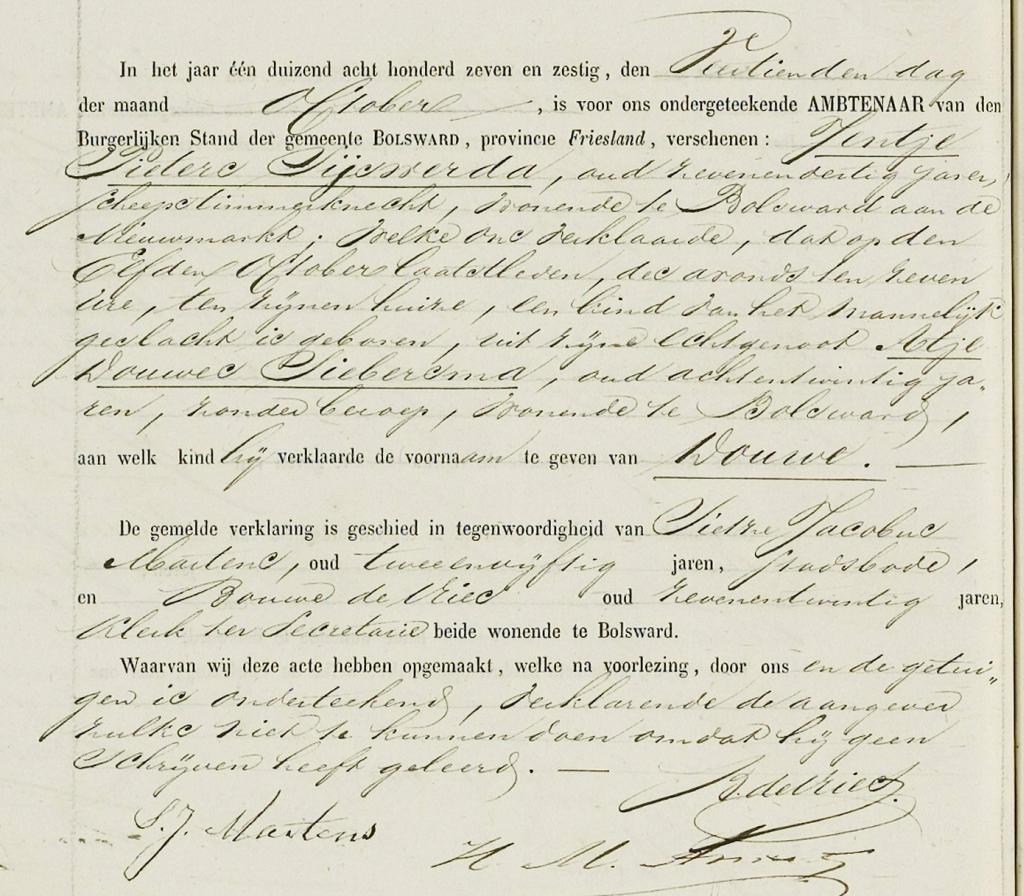 In het jaar één duizend acht honderd zeven en zestig, den Veertienden dag
der maand October, is voor ons ondergeteekende AMBTENAAR van den
Burgerlijken Stand der gemeente BOLSWARD, provincie Friesland, verschenen: Jentje
Pieters Sijswerda, oud zevenendertig jaren,
scheepstimmerknecht, wonende te Bolsward aan de
Nieuwmarkt; welke ons verklaarde, dat op den
Elfden October laatstleden, des avonds ten zeven
ure, ten zijnen huize, een kind van het mannelijk
geslacht is geboren, uit zijne echtgenoot Atje
Douwes Siebersma, oud achtentwintig ja-
ren, zonder beroep, wonende te Bolsward,
aan welk kind hij verklaarde de voornaam te geven van Douwe.
De gemelde verklaring is geschied in tegenwoordigheid van Sietze Jacobus
Martens, oud tweeenvijftig jaren, stadsbode,
en Bouwe de Vries oud zevenentwintig jaren,
Klerk ter Secretarie beide wonende te Bolsward.
Waarvan wij deze acte hebben opgemaakt, welke na voorlezing, door ons en de getui-
gen is onderteekend, verklarende de aangever
zulks niet te kunnen doen omdat hij geen
schrijven heeft geleerd.
B. de Vries.
S. J. Martens
H M.